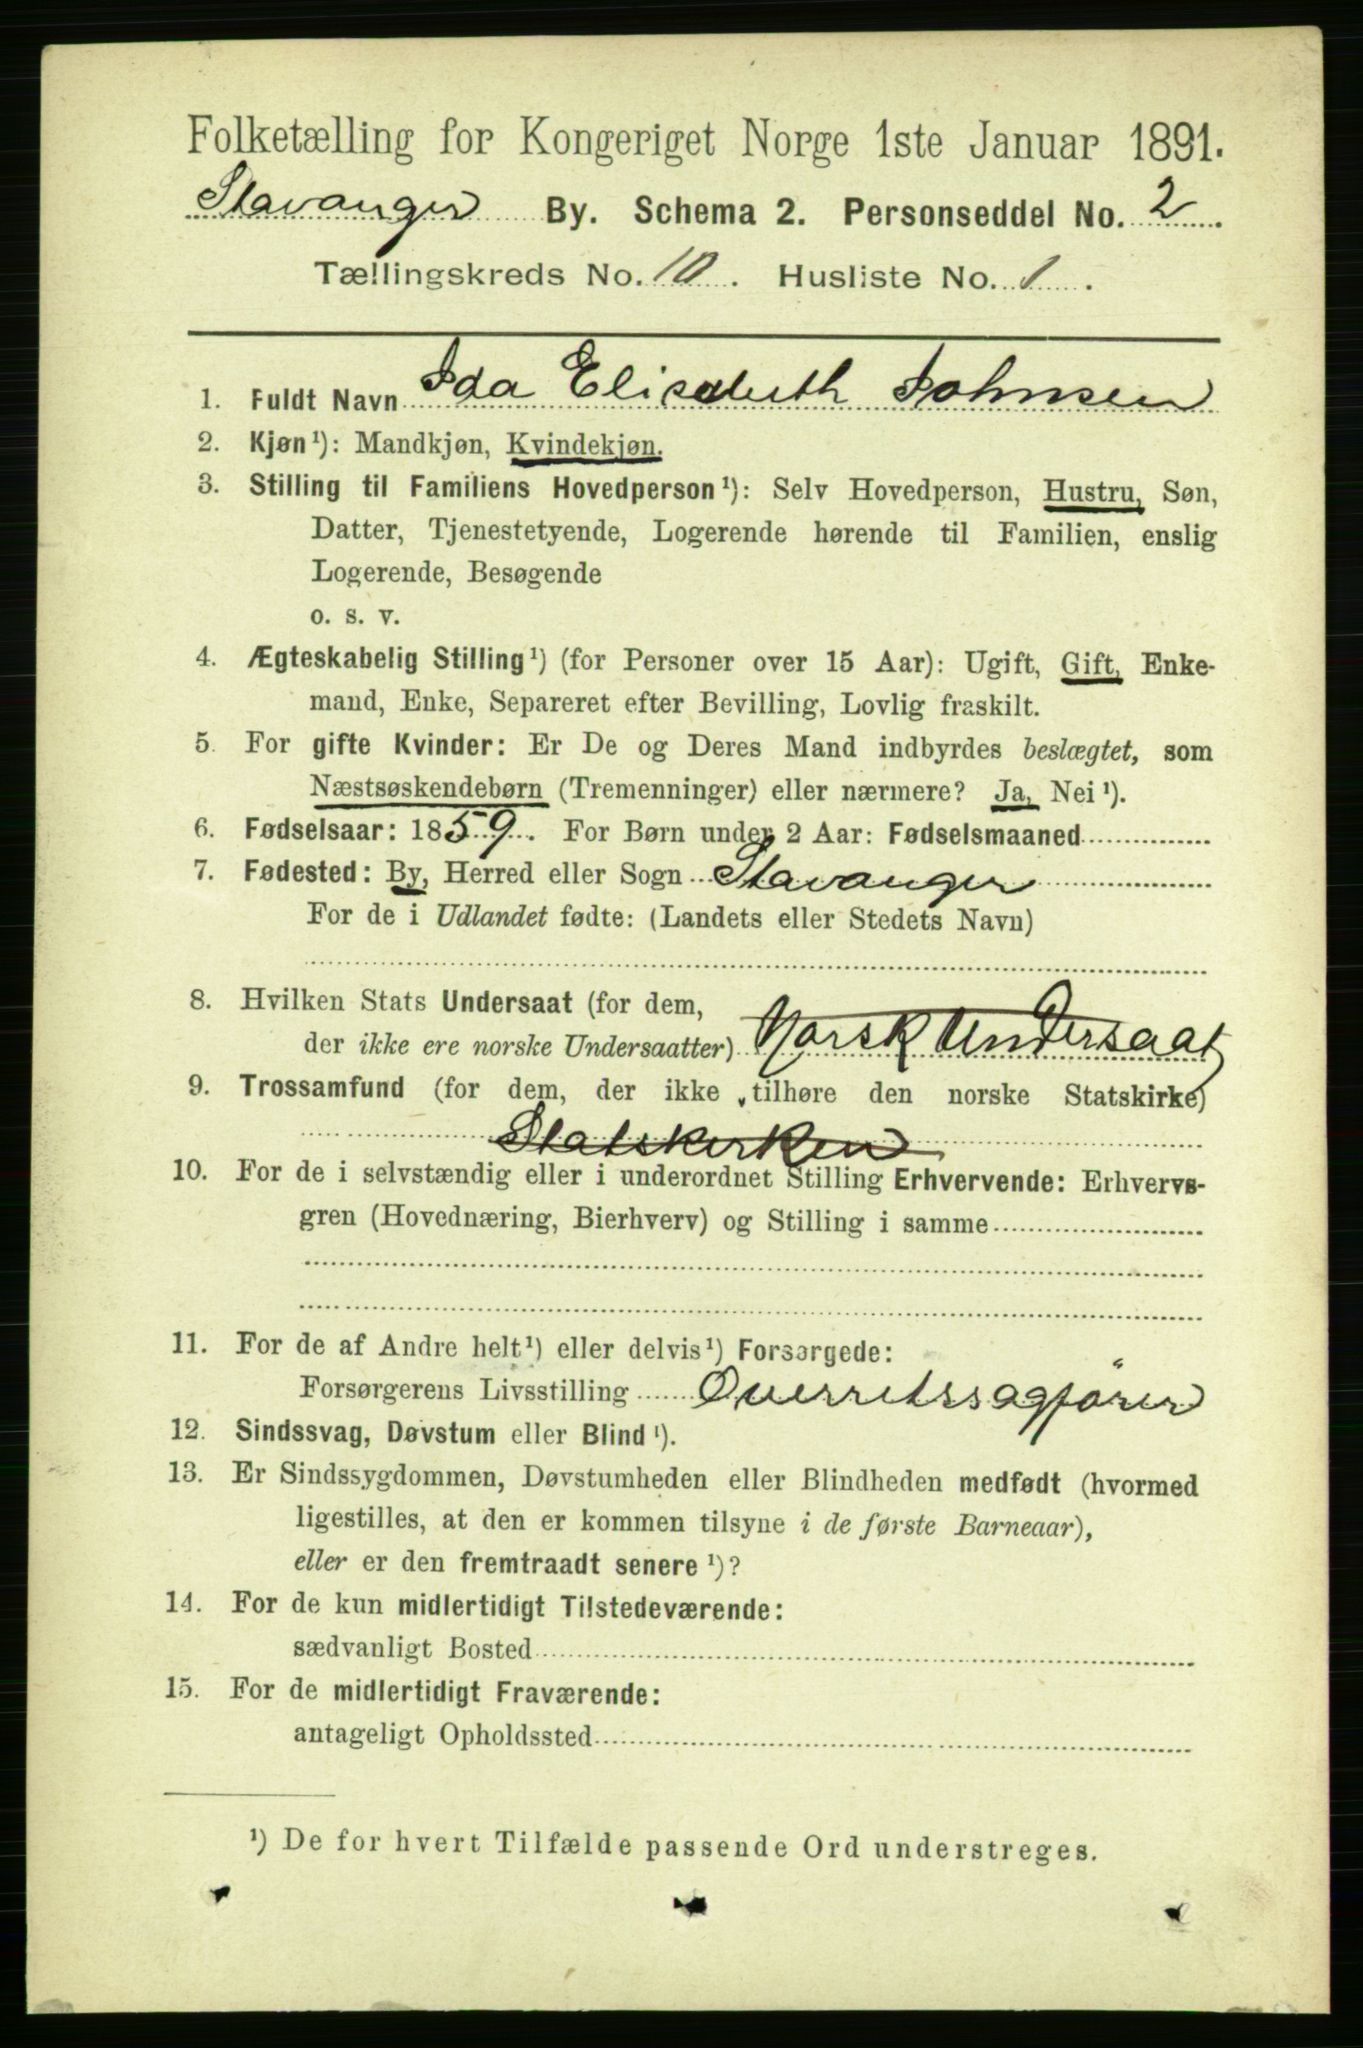 Folketælling for Kongeriget Norge 1ste Januar 1891.
Stavanger By. Schema 2. Personseddel No. 2
Tællingskreds No. 10. Husliste No. 1.
1. Fuldt Navn Ida Elisabeth Johnsen
2. Kjøn¹): Mandkjøn, Kvindekjøn.
3. Stilling til Familiens Hovedperson¹): Selv Hovedperson, Hustru, Søn,
Datter, Tjenestetyende, Logerende hørende til Familien, enslig
Logerende, Besøgende
o. s. v.
4. Ægteskabelig Stilling¹) (for Personer over 15 Aar): Ugift, Gift, Enke-
mand, Enke, Separeret efter Bevilling, Lovlig fraskilt.
5. For gifte Kvinder: Er De og Deres Mand indbyrdes beslægtet, som
Næstsøskendebørn (Tremenninger) eller nærmere? Ja, Nei¹).
6. Fødselsaar: 1859. For Børn under 2 Aar: Fødselsmaaned
7. Fødested: By, Herred eller Sogn Stavanger
For de i Udlandet fødte: (Landets eller Stedets Navn)
8. Hvilken Stats Undersaat (for dem,
der ikke ere norske Undersaatter) Norsk Undersaat
9. Trossamfund (for dem, der ikke tilhøre den norske Statskirke)
Statskirken
10. For de i selvstændig eller i underordnet Stilling Erhvervende: Erhvervs-
gren (Hovednæring, Bierhverv) og Stilling i samme
11. For de af Andre helt¹) eller delvis¹) Forsørgede:
Forsørgerens Livsstilling Overretssagförer
12. Sindssvag, Døvstum eller Blind¹).
13. Er Sindssygdommen, Døvstumheden eller Blindheden medfødt (hvormed
ligestilles, at den er kommen tilsyne i de første Barneaar),
eller er den fremtraadt senere¹)?
14. For de kun midlertidigt Tilstedeværende:
sædvanligt Bosted
15. For de midlertidigt Fraværende:
antageligt Opholdssted
¹) De for hvert Tilfælde passende Ord understreges.